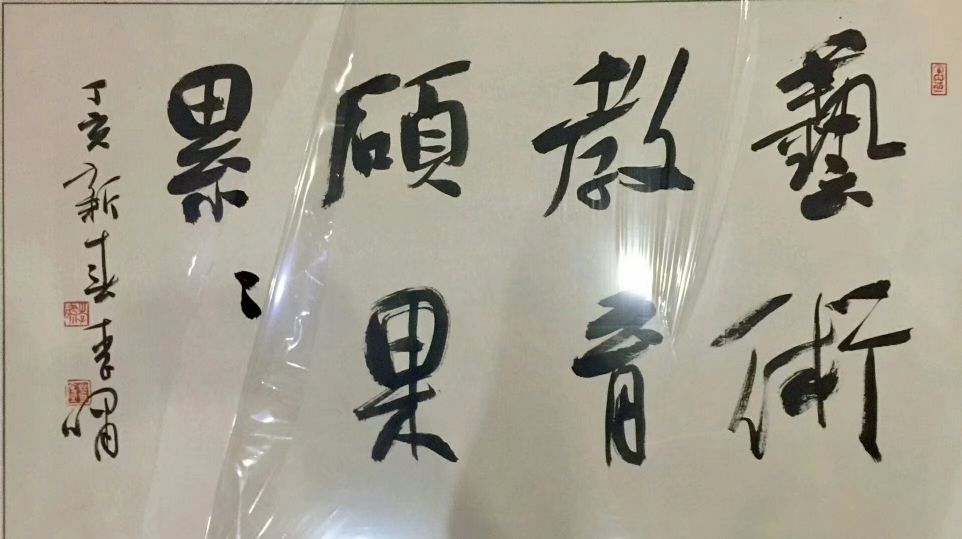 藝術
教育
碩果
累々
丁亥新春李嘯